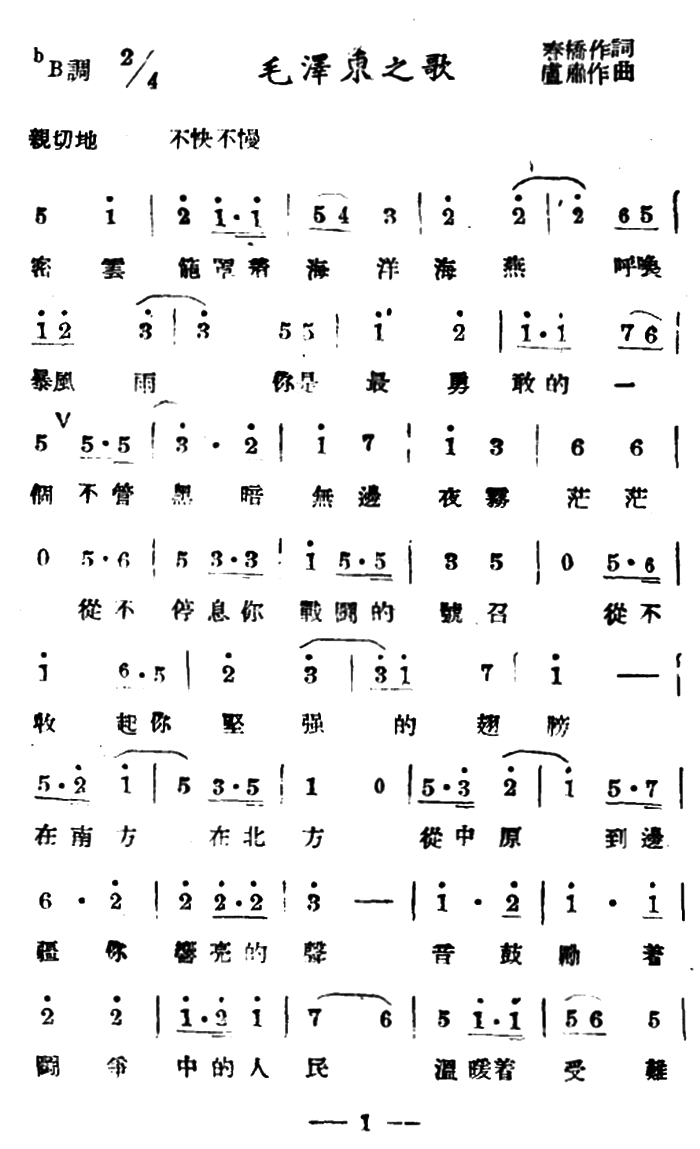 ᵇB調 2/4 毛澤東之歌 春橋作詞
盧肅作曲
親切地 不快不慢
5 i̇ | 2̇ i̇·i̇ | 5 4 3 | 2̇ 2̇ | 2̇ 6 5 |
密雲籠罩着海洋海燕 呼喚
i̇ 2̇ 3̇ | 3̇ 5 5 | i̇ 2̇ | i̇·i̇ 7 6 |
暴風雨 你是最勇敢的一
5 V 5·5 | 3̇·2̇ | i̇ 7 | i̇ 3 | 6 6 |
個不管黑暗無邊夜霧茫茫
0 5·6 | 5 3·3 | i̇ 5·5 | 3 5 | 0 5·6 |
從不停息你戰鬪的號召 從不
i̇ 6·5 | 2̇ 3̇ | 3̇ i̇ 7 | i̇ — |
收起你堅强的翅膀
5·2̇ i̇ | 5 3·5 | 1 0 | 5·3̇ 2̇ | i̇ 5·7 |
在南方 在北方 從中原 到邊
6·2̇ | 2̇ 2̇·2̇ | 3̇ — | i̇·2̇ | i̇·i̇ |
疆你響亮的聲 音鼓勵着
2̇ 2̇ | i̇·2̇ i̇ | 7 6 | 5 i̇·i̇ | 5 6 5 |
鬪爭中的人民 溫暖着受難
— 1 —